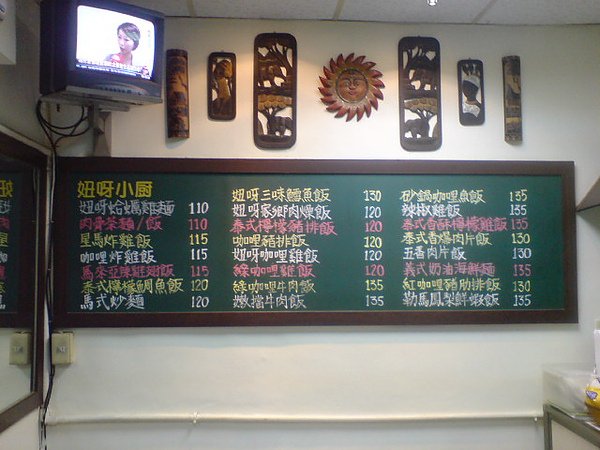 妞呀小厨
妞呀蛤螞雞麵 110
肉骨茶麵/飯 110
星馬炸雞飯 115
咖哩炸雞飯 115
馬來亞陳雞翅飯 115
泰式檸檬鯛魚飯 120
馬式炒麵 120
妞呀三味鱈魚飯 130
妞呀家鄉肉燥飯 120
泰式檸檬豬排飯 120
咖哩豬排飯 120
妞呀咖哩雞飯 120
綠咖哩雞飯 120
綠咖哩牛肉飯 135
嫩擋牛肉飯 135
砂鍋咖哩魚飯 135
辣椒雞飯 135
泰式香酥檸檬雞飯 135
泰式香爆肉片飯 130
五香肉片飯 130
義式奶油海鮮麵 135
紅咖哩豬肋排飯 130
勒馬鳳梨鮮蝦飯 135